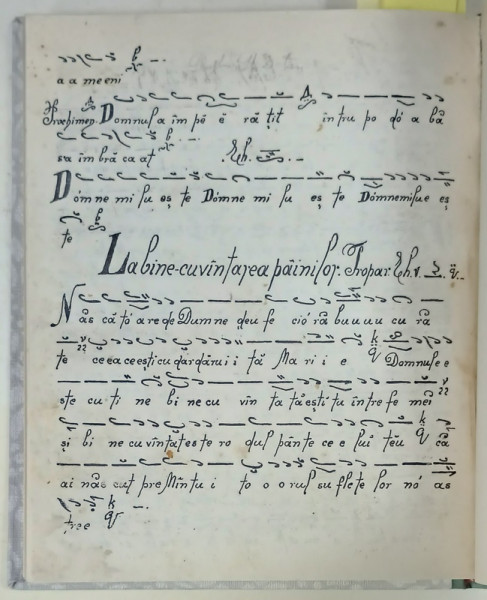 a a meeni
Prochimen. Domnul a îm pă ē ră țit întru po dó a bă
sa îm bră ca at Eh.
Dómne mi lu es te Dómne mi lu es te Domnemilue es
te
La bine-cuvîntarea pâinilor. Tropar. Eh. v.
Năs că tó are de Dumne deu fe ció ră buuuu cu ră
te ceea ce ești cu dar dăru i i tă Ma ri i e Domnul e e
ste cu ti ne bi ne cu vîn ta tă ești tu între fe mei
și bi ne cu vîntat este ro dul pânte ce e lui tĕu că
ai năs cut pre Mîntu i to o o rul su flete lor nó as
tree